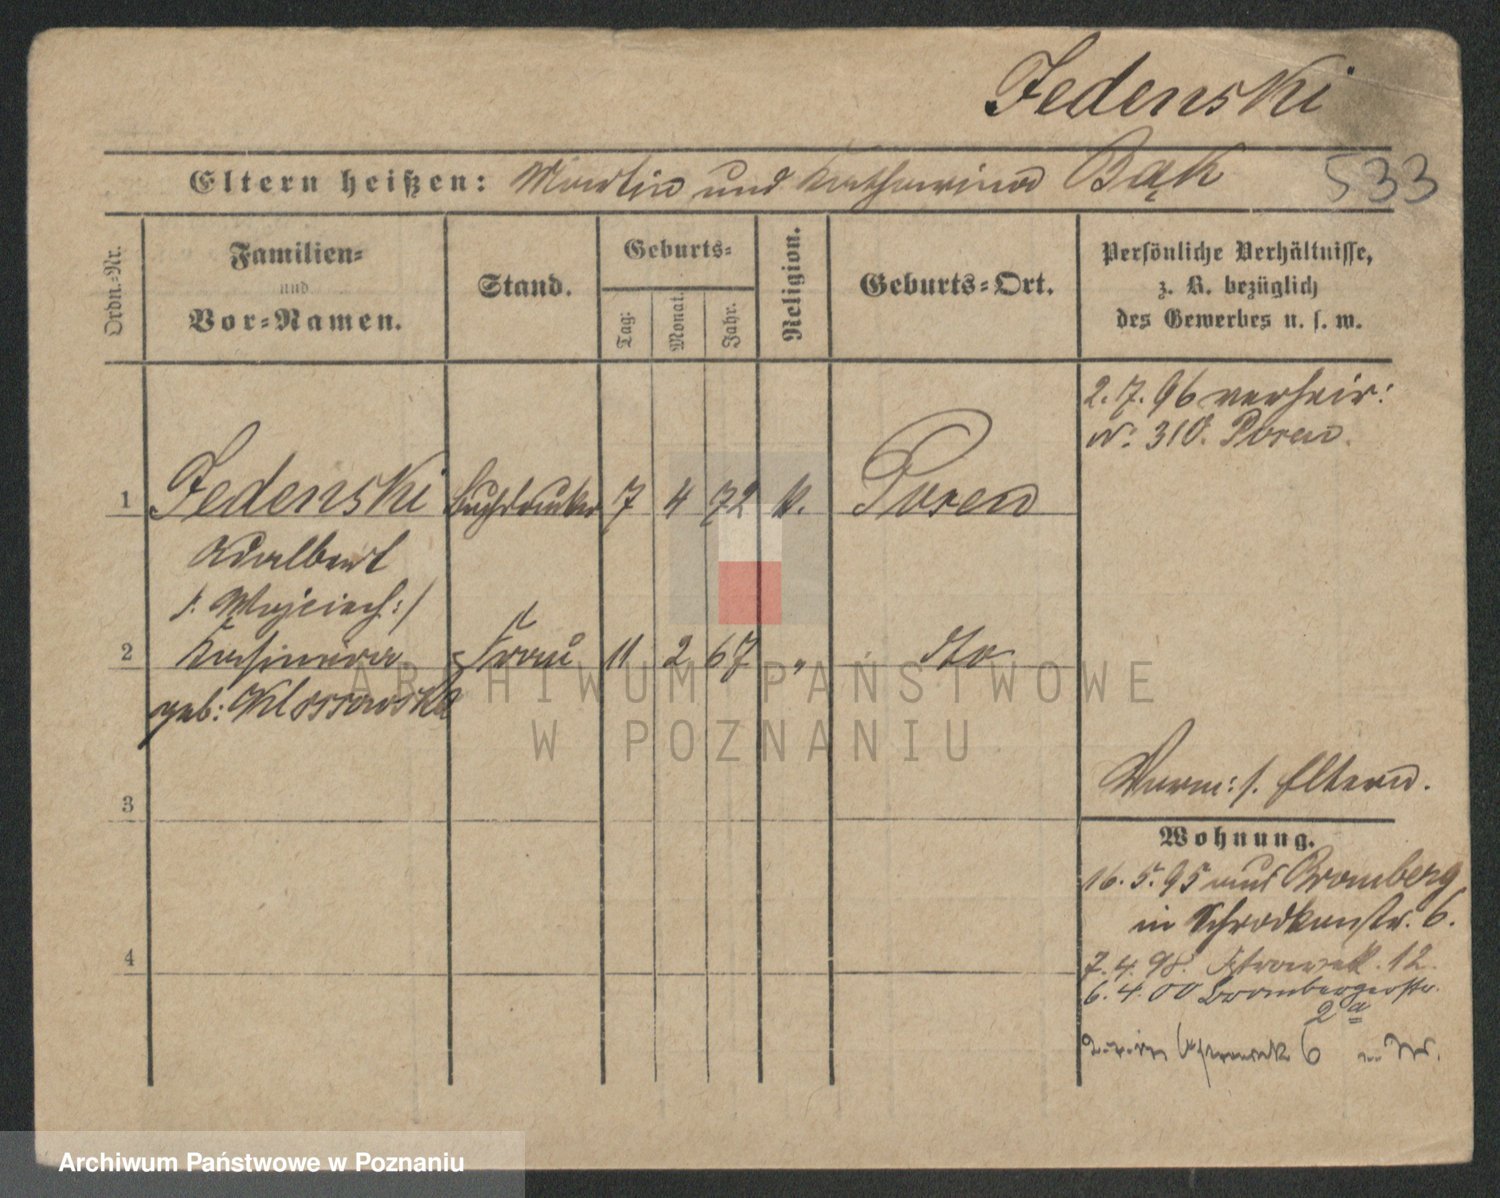 Jedenski
533
Eltern heißen: Martin und Katharina Bąk
Ordn.-Nr.
Familien-
und
Vor-Namen.
Stand.
Geburts-
Tag.
Monat.
Jahr.
Religion.
Geburts-Ort.
Persönliche Verhältnisse,
z. B. bezüglich
des Gewerbes u. s. w.
2.7.96 verheir:
Nr. 310. Posen.
1 Jedenski Buchdrucker 7 4 72 k. Posen
Adalbert
/: Wojciech :/
2 Kasimira Frau 11 2 67 " dto
geb: Klossowska
3
Verm: s. Eltern.
Wohnung.
16.5.95 aus Bromberg
in Schrodkaerstr. 6.
4
7.4.98. 12.
6.4.00 Brombergerstr.
2a
6
ARCHIWUM PAŃSTWOWE
W POZNANIU
Archiwum Państwowe w Poznaniu